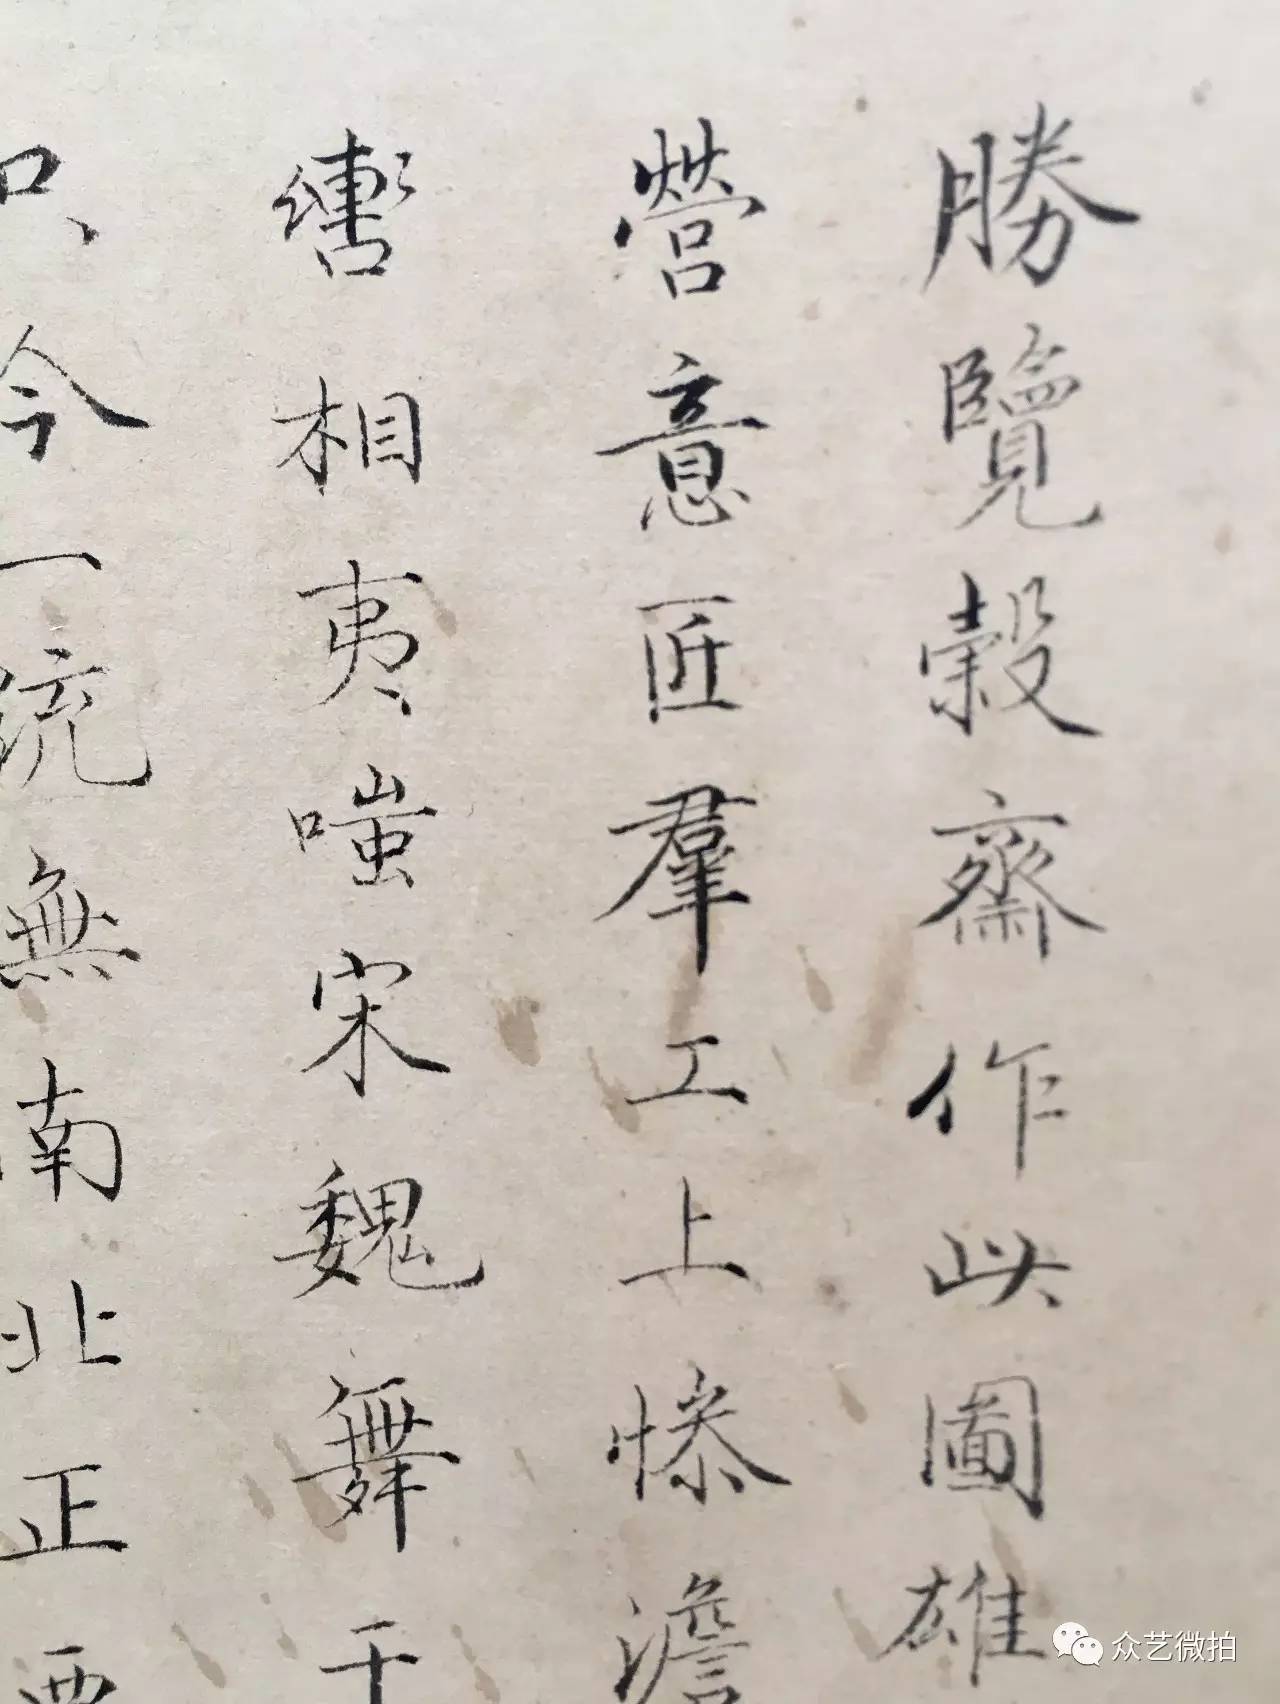 勝覽穀齋作此圖雄
營意匠羣工上慘澹
轡相夷嗤宋魏舞干
只今一統無南北正
众艺微拍